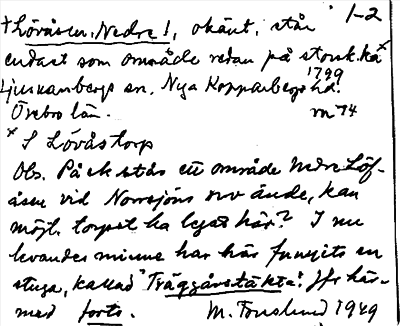 1-2
† Lövåsen, Nedre!, okänt, står
endast som område redan på storsk.ka x
1799
Ljuskarsbergs sn. Nya Kopparbergs hd.
Örebro län. m 74
x I Lövåstorp
Obs. På ek står ett område Nedre Löf-
åsen vid Norrsjöns nv ände, kan
möjl. torpet ha legat här? I nu
levandes minne har här funnits en
stuga, kallad "Träggårstäkta". Jfr här-
med forts. M. 1949